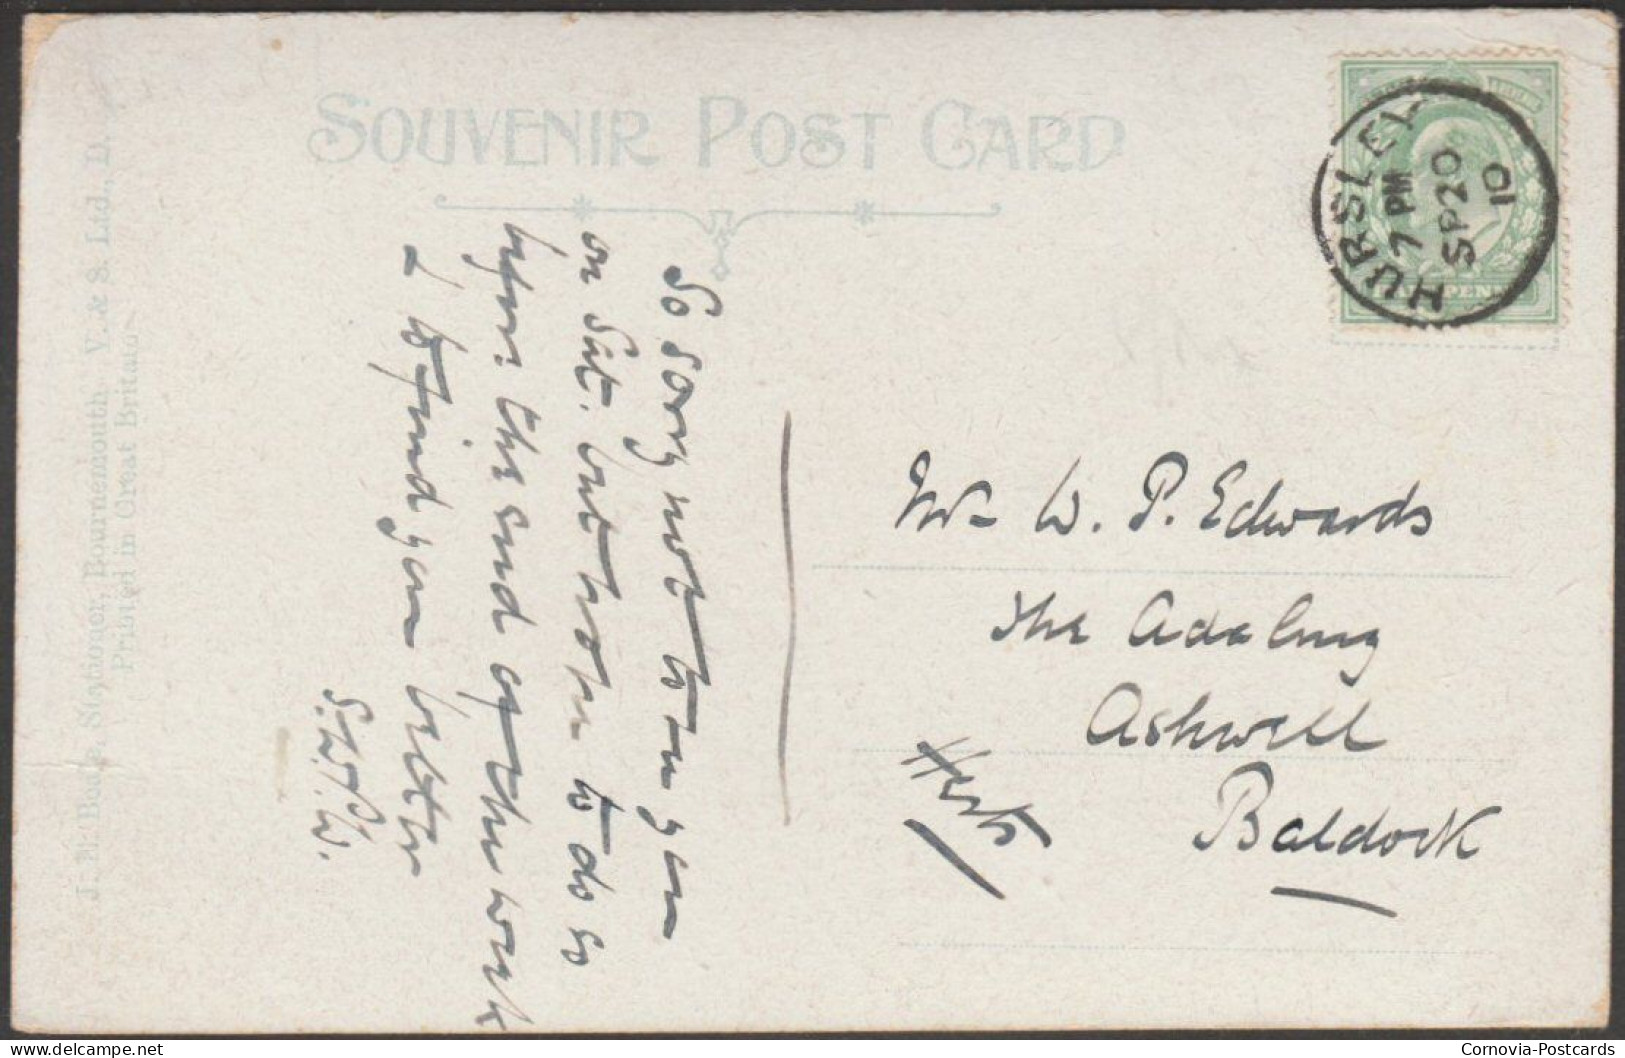 SOUVENIR POST CARD
HURSLEY
7 PM
SP 20
10
So sorry not to see you
on Sat. but hope to do so
before the end of the week
& to find you better
S.W.P.W.
Mr W. P. Edwards
The
Ashwell
Baldock
Herts
Stationer, Bournemouth V. & S. Ltd., D.
Printed in Great Britain
Cornovia-Postcards